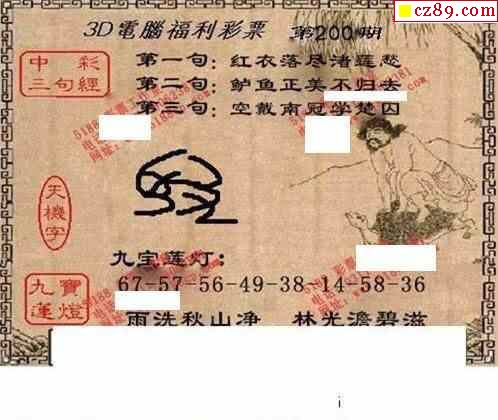 cz89.com
3D電腦福利彩票 第200期
中彩三句經
第一句：红衣落尽渚莲愁
第二句：鲈鱼正美不归去
第三句：空戴南冠学楚囚
天機字
九宝莲灯：
67-57-56-49-38-14-58-36
九寶蓮燈
雨洗秋山净 林光澹碧滋
i